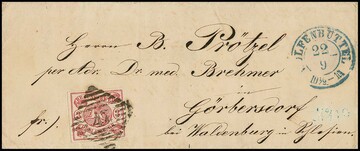 WOLFENBÜTTEL
22
9
Herrn B. Prötzel
per Adr. Dr. med. Brehmer
in
Görbersdorf
fr).
bei Waldenburg in Schlesien.